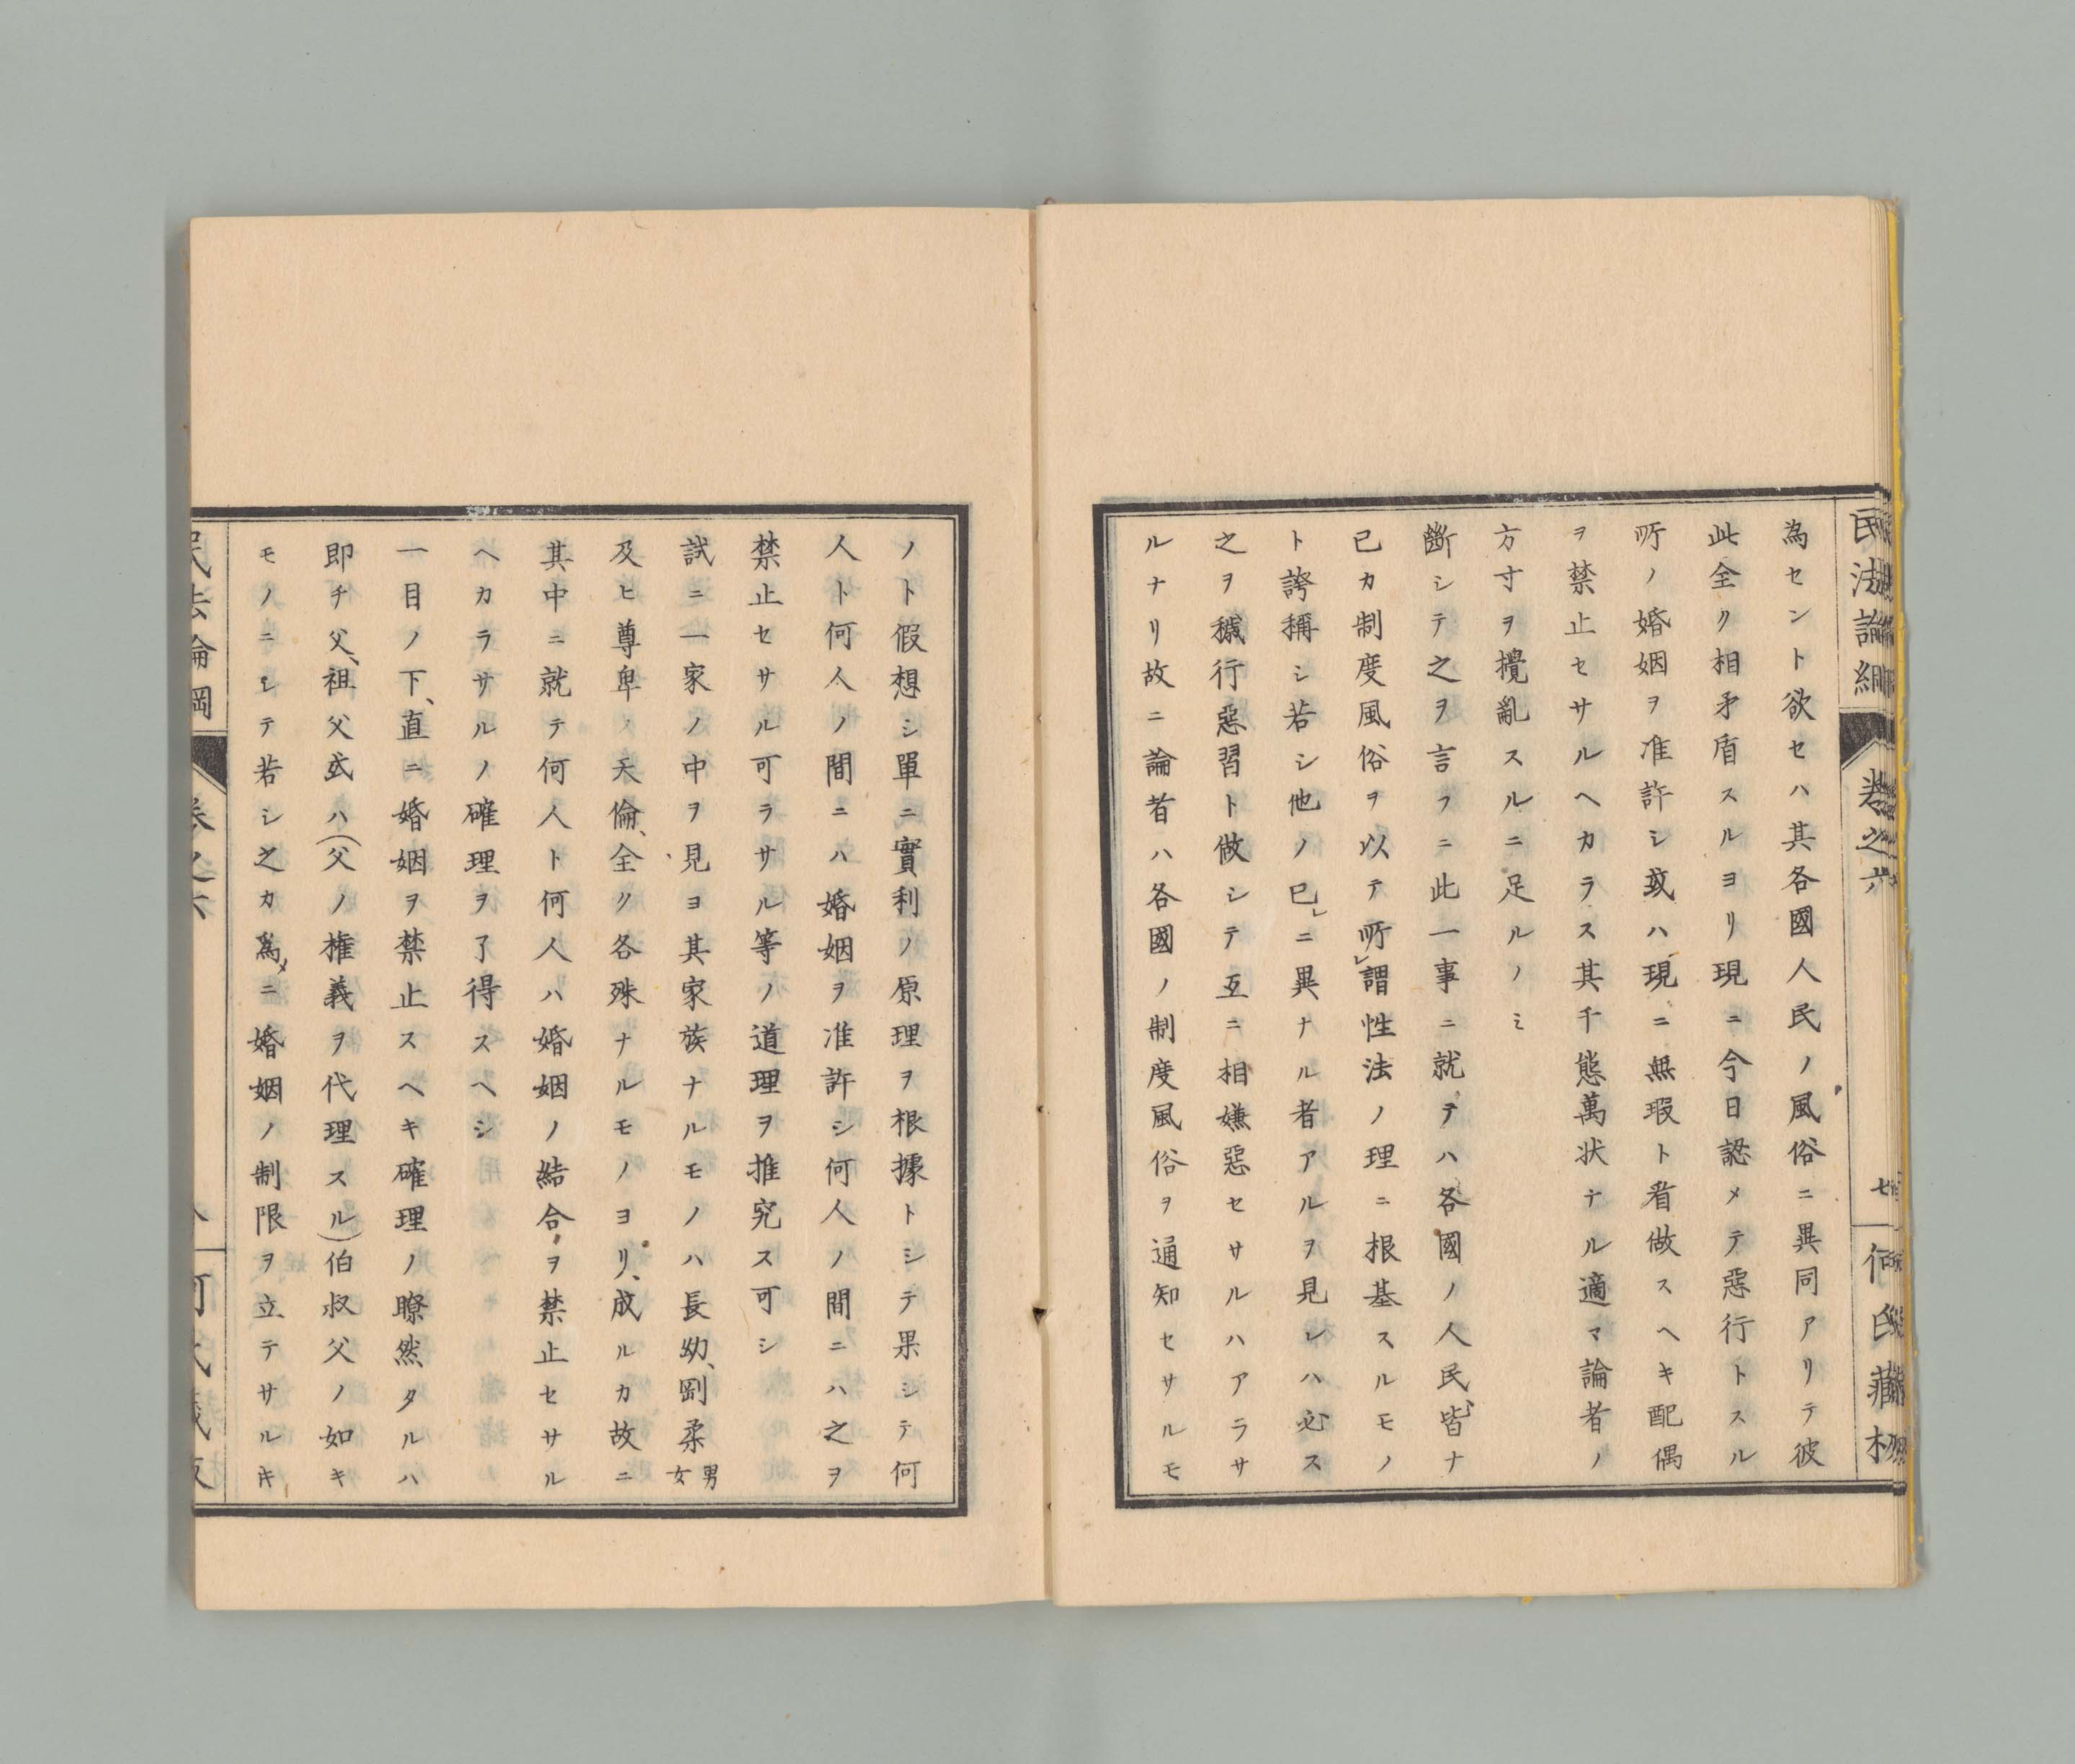 民法論綱
卷之六
七
何氏藏板
為セント欲セハ其各國人民ノ風俗ニ異同アリテ彼
此全ク相矛盾スルヨリ現ニ今日認メテ惡行トスル
所ノ婚姻ヲ准許シ或ハ現ニ無瑕ト看做スヘキ配偶
ヲ禁止セサルヘカラス其千態萬状ナル適マ論者ノ
方寸ヲ攪亂スルニ足ルノミ
斷シテ之ヲ言フニ此一事ニ就テハ各國ノ人民、皆ナ
已カ制度風俗ヲ以テ所謂性法ノ理ニ根基スルモノ
ト誇稱シ若シ他ノ已レニ異ナル者アルヲ見レハ必ス
之ヲ穢行惡習ト做シテ互ニ相嫌惡セサルハアラサ
ルナリ故ニ論者ハ各國ノ制度風俗ヲ通知セサルモ
ノト假想シ單ニ實利ノ原理ヲ根據トシテ果シテ何
人ト何人ノ間ニハ婚姻ヲ准許シ何人ノ間ニハ之ヲ
禁止セサル可ラサル等ノ道理ヲ推究ス可シ
試ニ一家ノ中ヲ見ヨ其家族ナルモノハ長幼、剛柔男女
及ヒ尊卑ノ天倫、全ク各殊ナルモノヨリ、成ルカ故ニ
其中ニ就テ何人ト何人ハ婚姻ノ結合ヲ禁止セサル
ヘカラサルノ確理ヲ了得スヘシ
一目ノ下、直ニ婚姻ヲ禁止スヘキ確理ノ瞭然タルハ
即チ父、祖父或ハ(父ノ權義ヲ代理スル)伯叔父ノ如キ
モノニシテ若シ之カ為メニ婚姻ノ制限ヲ立テサルキ
民法論綱
卷之六
八
何氏藏板